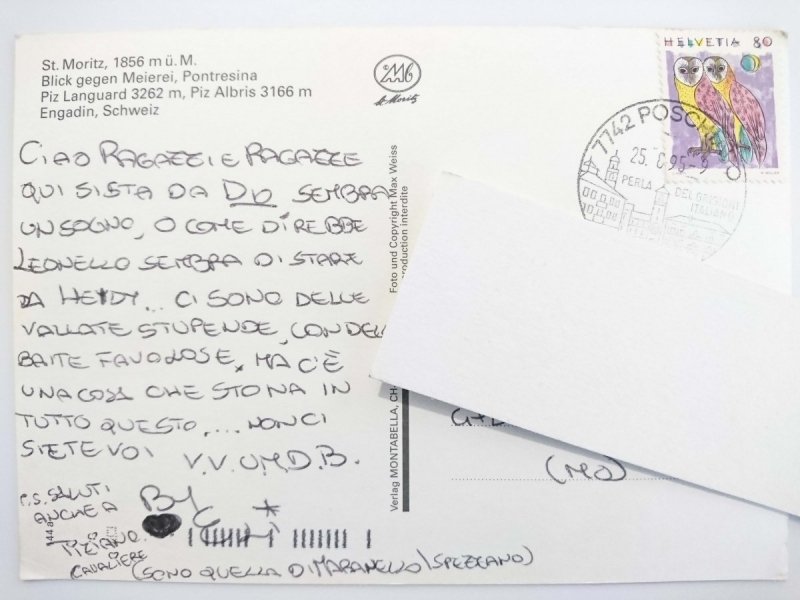 St. Moritz, 1856 m ü. M.
Blick gegen Meierei, Pontresina
Piz Languard 3262 m, Piz Albris 3166 m
Engadin, Schweiz
St. Moritz
HELVETIA 80
7742 POSCH
25.
PERLA DEL GRIGIONI ITALIANO
CIAO RAGAZZI E RAGAZZE
QUI SI STA DA DIO SEMBRA
UN SOGNO, O COME DIREBBE
LEONELLO SEMBRA DI STARE
DA HEIDY... CI SONO DELLE
VALLATE STUPENDE, CON DELL
BAITE FAVOLOSE, MA C'È
UNA COSA CHE STONA IN
TUTTO QUESTO.... NON CI
SIETE VOI V.V.U.M.D.B.
P.S. SALUTI
ANCHE A
TIZIANO
CAVALIERE
BY
(SONO QUELLA DI MARANELLO \ SPEZZANO)
Verlag MONTABELLA, CH-
Foto und Copyright Max Weiss
production interdite
144a
(MO)